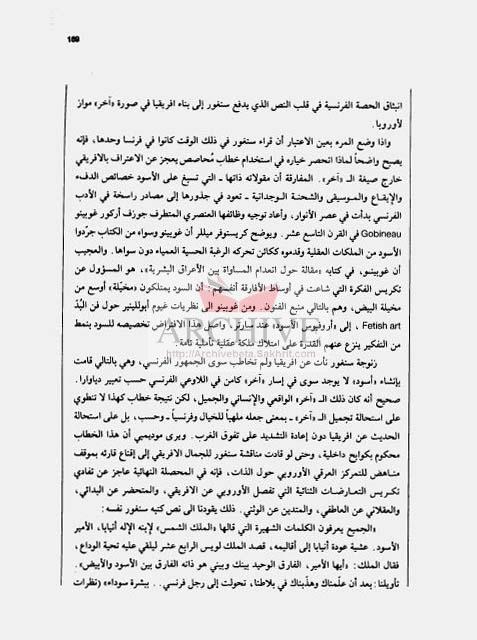 169
انبثاق الحصة الفرنسية في قلب النص الذي يدفع سنغور إلى بناء افريقيا في صورة «آخر» مواز
لأوروبا.
واذا وضع المرء بعين الاعتبار أن قراء سنغور في ذلك الوقت كانوا في فرنسا وحدها، فإنه
يصبح واضحاً لماذا انحصر خياره في استخدام خطاب مُحاصص يعجز عن الاعتراف بالافريقي
خارج صيغة الـ «آخر». المفارقة أن مقولاته ذاتها ـ التي تسبغ على الأسود خصائص الدفء
والإيقاع والموسيقى والشحنة الوجدانية ـ تعود في جذورها إلى مصادر راسخة في الأدب
الفرنسي بدأت في عصر الأنوار، وأعاد توجيه وظائفها العنصري المتطرف جوزف أركور غوبينو
Gobineau في القرن التاسع عشر. ويوضح كريستوفر ميللر أن غوبينو وسواه من الكتاب جرّدوا
الأسود من الملكات العقلية وقدموه ككائن تحركه الرغبة الحسية العمياء دون سواها. والعجيب
أن غوبينو، في كتابه «مقالة حول انعدام المساواة بين الأعراق البشرية»، هو المسؤول عن
تكريس الفكرة التي شاعت في أوساط الأفارقة أنفسهم: أن السود يمتلكون «مخيّلة» أوسع من
مخيلة البيض، وهم بالتالي منبع الفنون. ومن غوبينو الى نظريات غيوم أبوللينير حول فن البُدّ
Fetish art، إلى «أورفيوس الأسود» عند سارتر، واصل هذا الافتراض تخصيصه للسود بنمط
من التفكير ينزع عنهم القدرة على امتلاك ملكة عقلية تأملية تامة.
ARCHIVE
http://Archivebeta.Sakhrit.com
زنوجة سنغور نأت عن افريقيا ولم تخاطب سوى الجمهور الفرنسي، وهي بالتالي قامت
بإنشاء «أسود» لا يوجد سوى في إسار «آخر» كامن في اللاوعي الفرنسي حسب تعبير دياوارا.
صحيح أنه كان ذلك الـ «آخر» الواقعي والإنساني والجميل، لكن نتيجة خطاب كهذا لا تنطوي
على استحالة تجميل الـ «آخر» ـ بمعنى جعله ملهباً للخيال وفرنسياً ـ وحسب، بل على استحالة
الحديث عن افريقيا دون إعادة التشديد على تفوق الغرب. ويرى موديمبي أن هذا الخطاب
محكوم بكوابح داخلية، وحتى لو قادت مناقشة سنغور للجمال الافريقي إلى إقناع قارئه بموقف
مناهض للتمركز العرقي الأوروبي حول الذات، فإنه في المحصلة النهائية عاجز عن تفادي
تكريس التعارضات الثنائية التي تفصل الأوروبي عن الافريقي، والمتحضر عن البدائي،
والعقلاني عن العاطفي، والمتدين عن الوثني. ذلك يقودنا الى نص كتبه سنغور نفسه:
«الجميع يعرفون الكلمات الشهيرة التي قالها «الملك الشمس» لإبنه الإله أنيابا، الأمير
الأسود. عشية عودة أنيابا إلى أقاليمه، قصد الملك لويس الرابع عشر ليلقي عليه تحية الوداع،
فقال الملك: «أيها الأمير، الفارق الوحيد بينك وبيني هو ذاته الفارق بين الأسود والأبيض».
تأويلنا: بعد أن علّمناك وهذّبناك في بلاطنا، تحولت إلى رجل فرنسي.. ببشرة سوداء» (نظرات